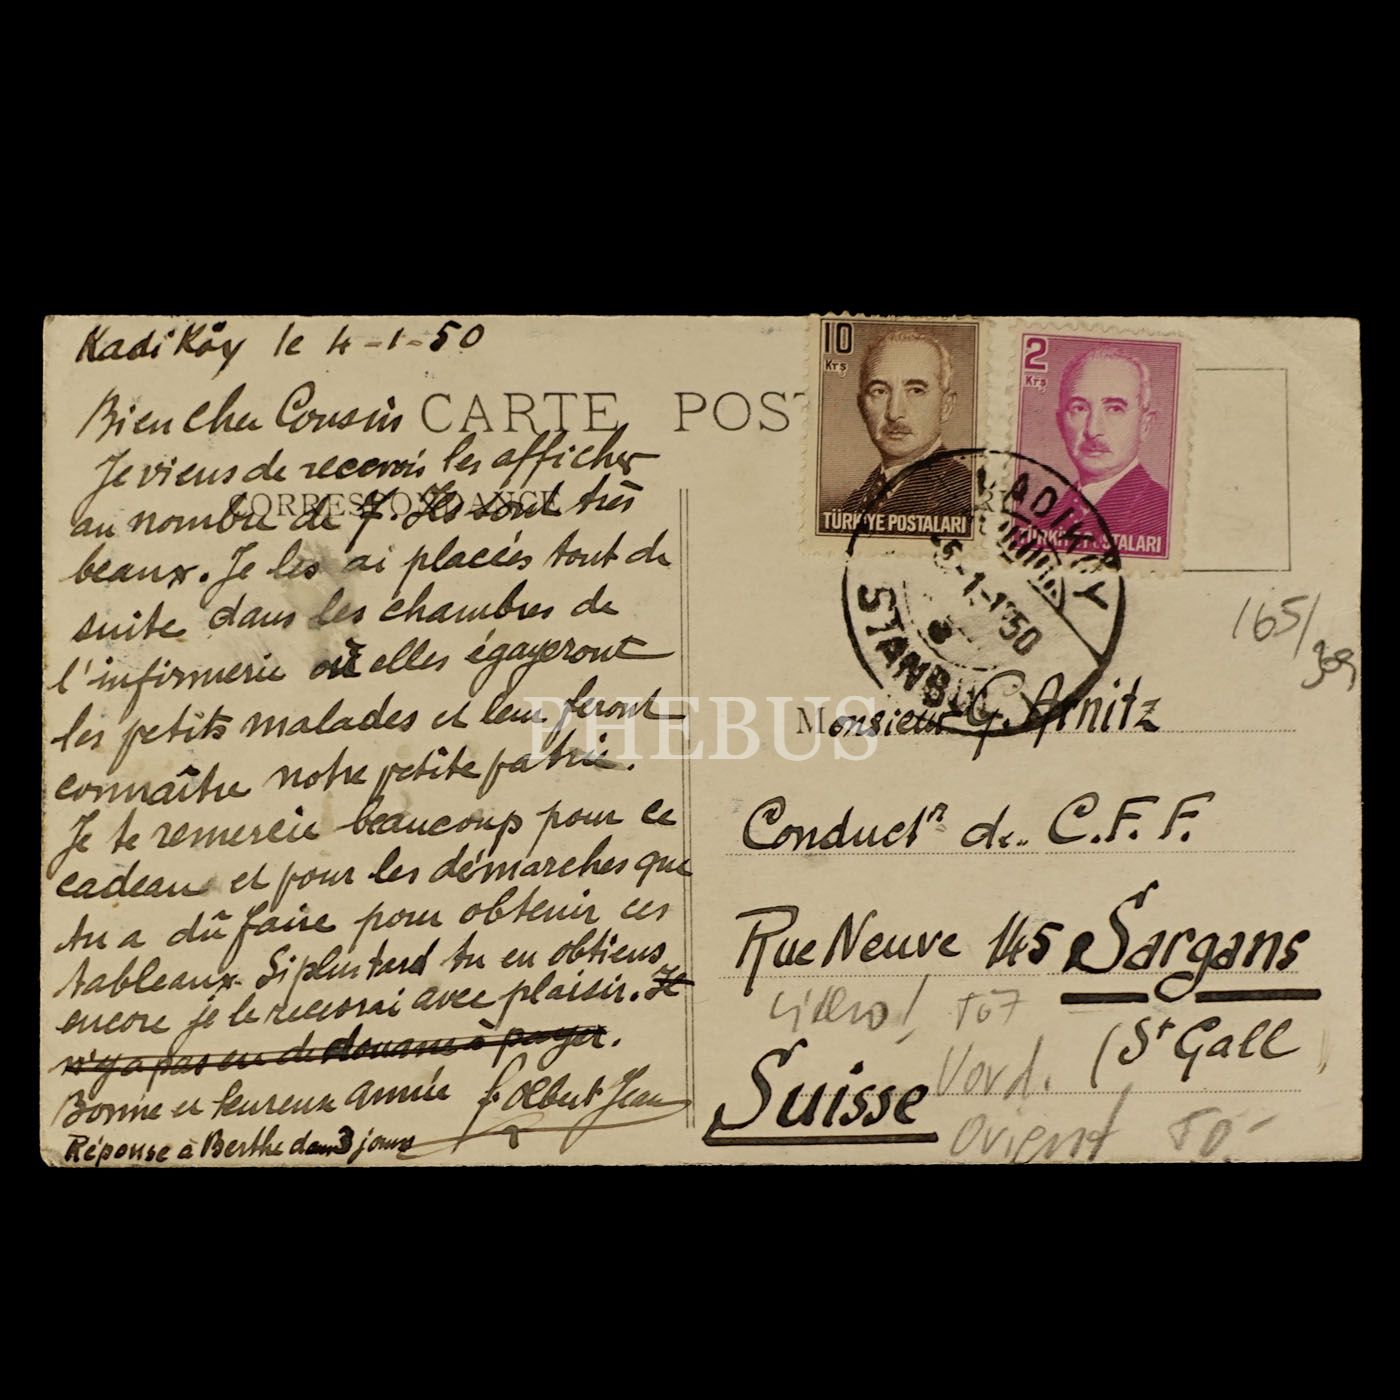 Kadi Köy le 4-1-50
CARTE POST
Bien cher Cousin
CORRESPONDANCE
Je viens de recevoir les affiches
au nombre de 7. Ils sont très
beaux. Je les ai placées tout de
suite dans les chambres de
l'infirmerie où elles égayeront
les petits malades et leur feront
connaître notre petite patrie.
Je te remercie beaucoup pour ce
cadeau et pour les démarches que
tu a dû faire pour obtenir ces
tableaux. Si plus tard tu en obtiens
encore je le recevrai avec plaisir. Il
n'y a pas eu de douane à payer.
Bonne et heureuse année f. Albert Jean
Réponse à Berthe dans 3 jours
10 Krş
TÜRKİYE POSTALARI
2 Krş
TÜRKİYE POSTALARI
KADIKÖY
-1-1950
İSTANBUL
165/
PHEBUS
Monsieur G. Arnitz
Conductr de C.F.F.
Rue Neuve 145 Sargans
(St Gall
Suisse
Vord.
Orient 50.-